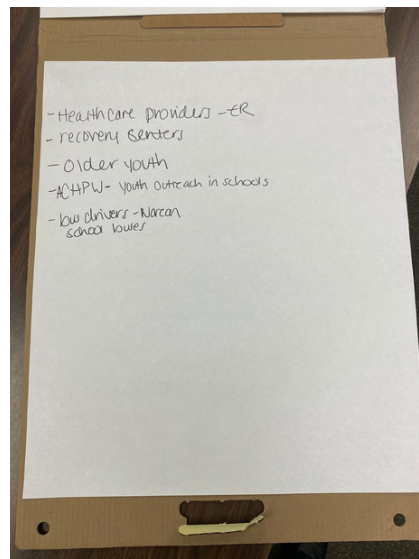 - Health care providers - ER
- recovery centers
- Older youth
- ACHPW - Youth Outreach in schools
- bus drivers - Narcan
school buses